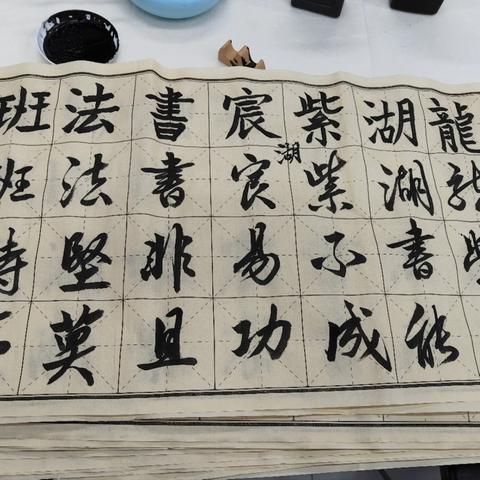 龍湖紫宸書法班
湖
龍湖紫宸書法班
書不易非堅持
能成功且莫